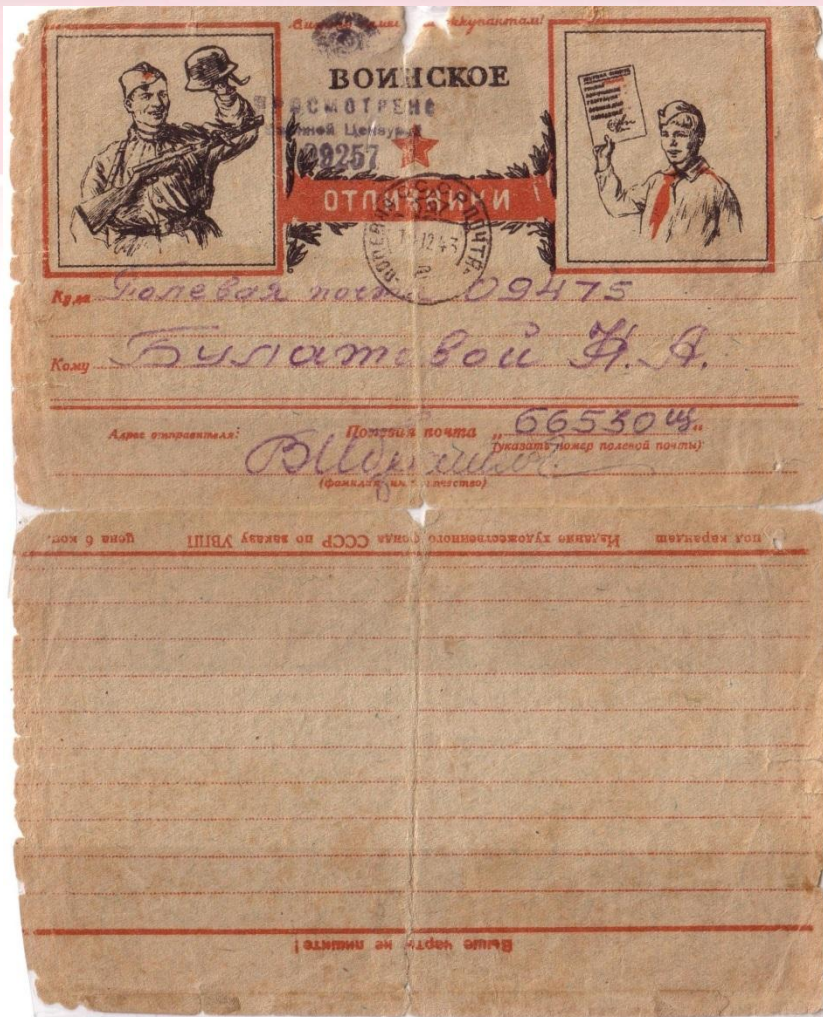 оккупантам!
ВОИНСКОЕ
ПРОСМОТРЕНО
Военной Цензурой
09257
ОТЛИЧНИКИ
12 43
Куда Полевая почта 09475
Кому Булатовой Н. А.
Адрес отправителя: Полевая почта „66530 Щ“
(указать номер полевой почты)
(фамилия, имя, отчество)
под карандаш Издание художественного фонда СССР по заказу УВПП цена 6 коп.
Выше черты не пишите!